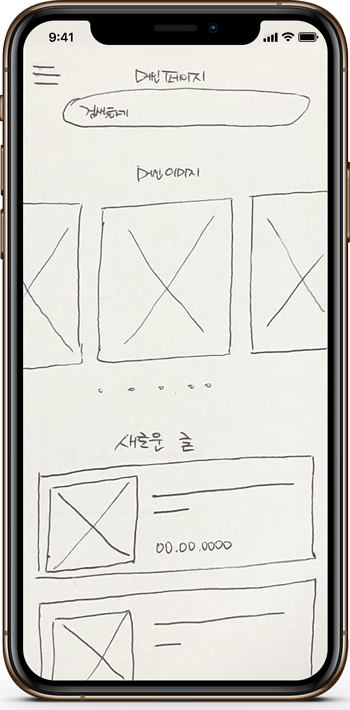 9:41
메인페이지
검색하기
메인이미지
새로운 글
00.00.0000